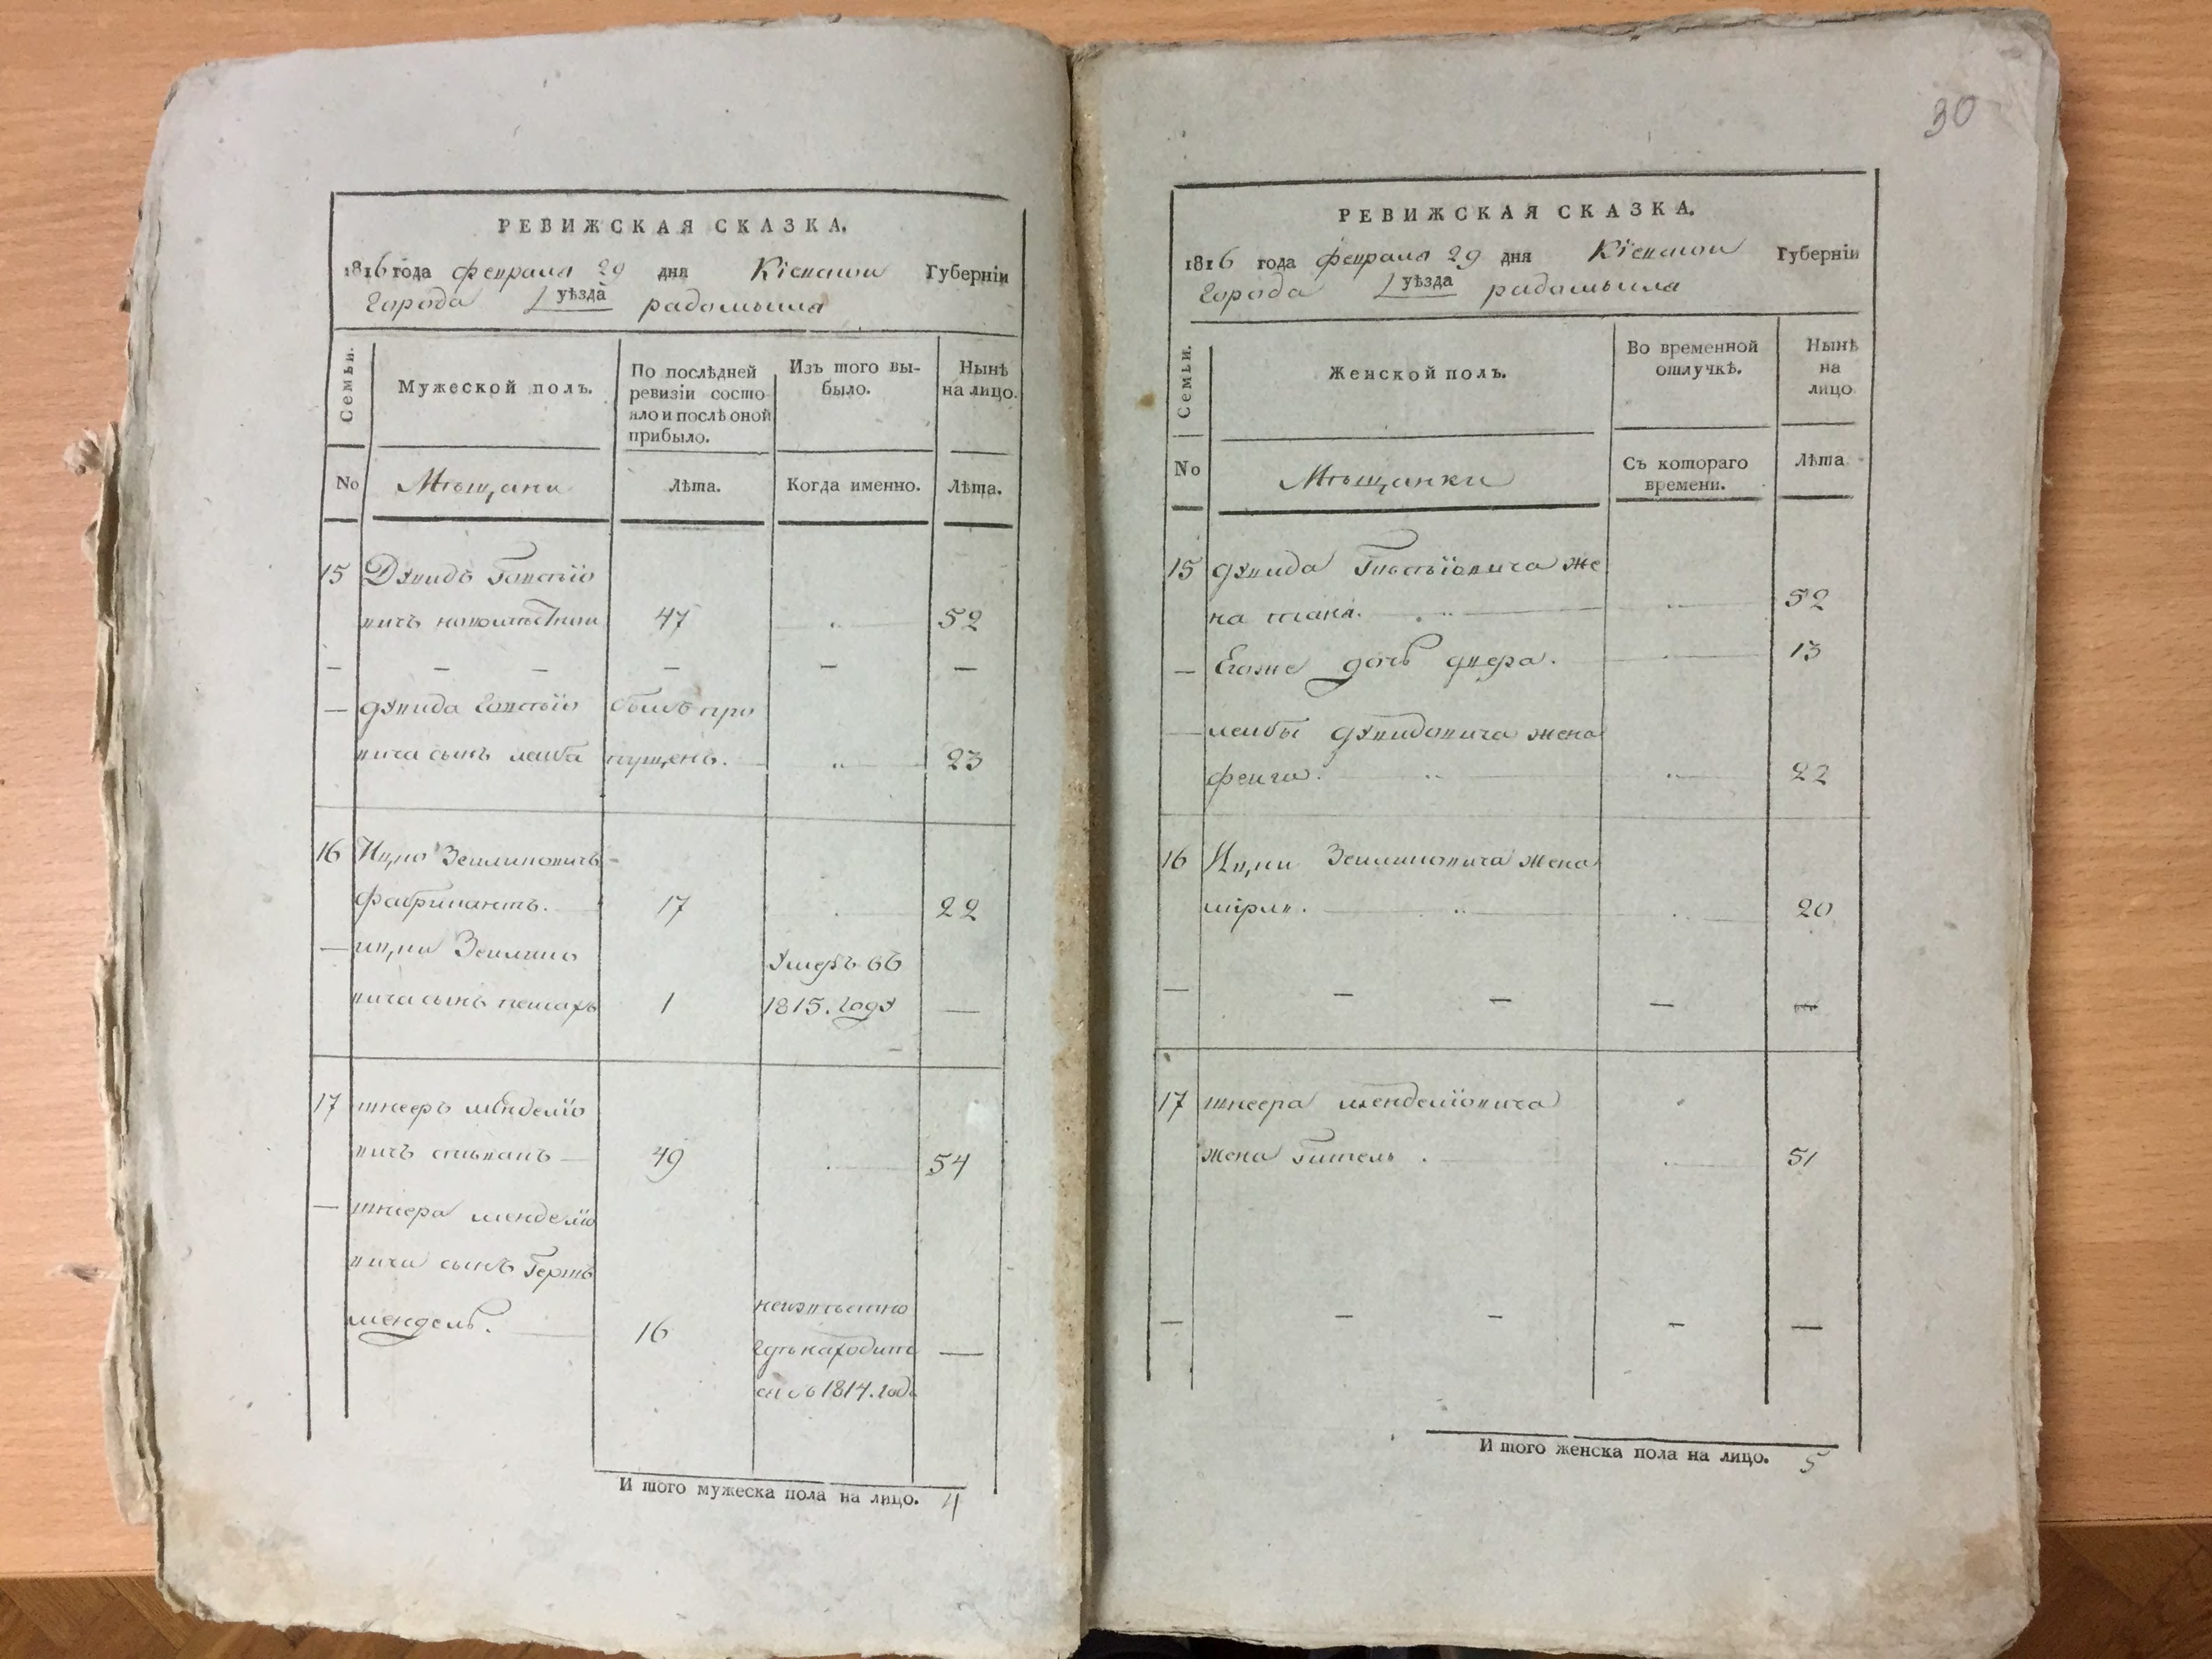 РЕВИЖСКАЯ СКАЗКА.
1816 года февраля 29 дня Кіевской Губерніи
Города уѣзда радомысля
Семьи.
Мужеской полъ.
По послѣдней ревизіи состояло и послѣ оной прибыло.
Изъ того выбыло.
Нынѣ на лицо.
No Мѣщани Лѣта. Когда именно. Лѣта.
15 Дувидъ
вичъ 47 52
— — — — — —
— дувида былъ про
вича сынъ лейба пущенъ. 23
16 Ицко Зейликовичъ
фабрикантъ. 17 22
— ицка Зейлико умеръ въ
вича сынъ 1 1815. году —
17 шнееръ менделіо
вичъ 49 54
— шнеера менделіо
вича сынъ Гершъ
мендель. 16 неизвѣстно
гдѣ находитъ —
ся съ 1814. года
И того мужеска пола на лицо. 4
30
РЕВИЖСКАЯ СКАЗКА.
1816 года февраля 29 дня Кіевской Губерніи
Города уѣзда радомысля
Семьи.
Женской полъ.
Во временной отлучкѣ.
Нынѣ на лицо
No Мѣщанки Съ котораго времени. Лѣта
15 дувида же
на 52
— Егоже дочь двера. 13
— лейбы дувидовича жена
фейга. 22
16 Ицки Зейликовича жена
20
— — — — —
17 шнеера менделіовича
жена Гитель. 51
— — — — —
И того женска пола на лицо. 5